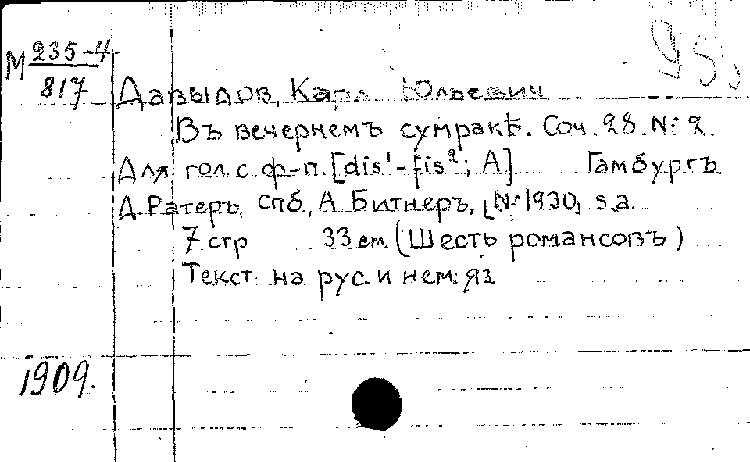 М 235-4
817
Давыдов, Карл Юльевич
Въ вечернемъ сумракѣ. Соч. 28 № 2.
Для гол. с ф-п. [dis¹-fis²; А] Гамбургъ
Д. Ратеръ, Спб, А. Битнеръ, [№ 1930] s.a.
7 стр 33 см. (Шесть романсовъ)
Текст на рус. и нем. яз
1909.